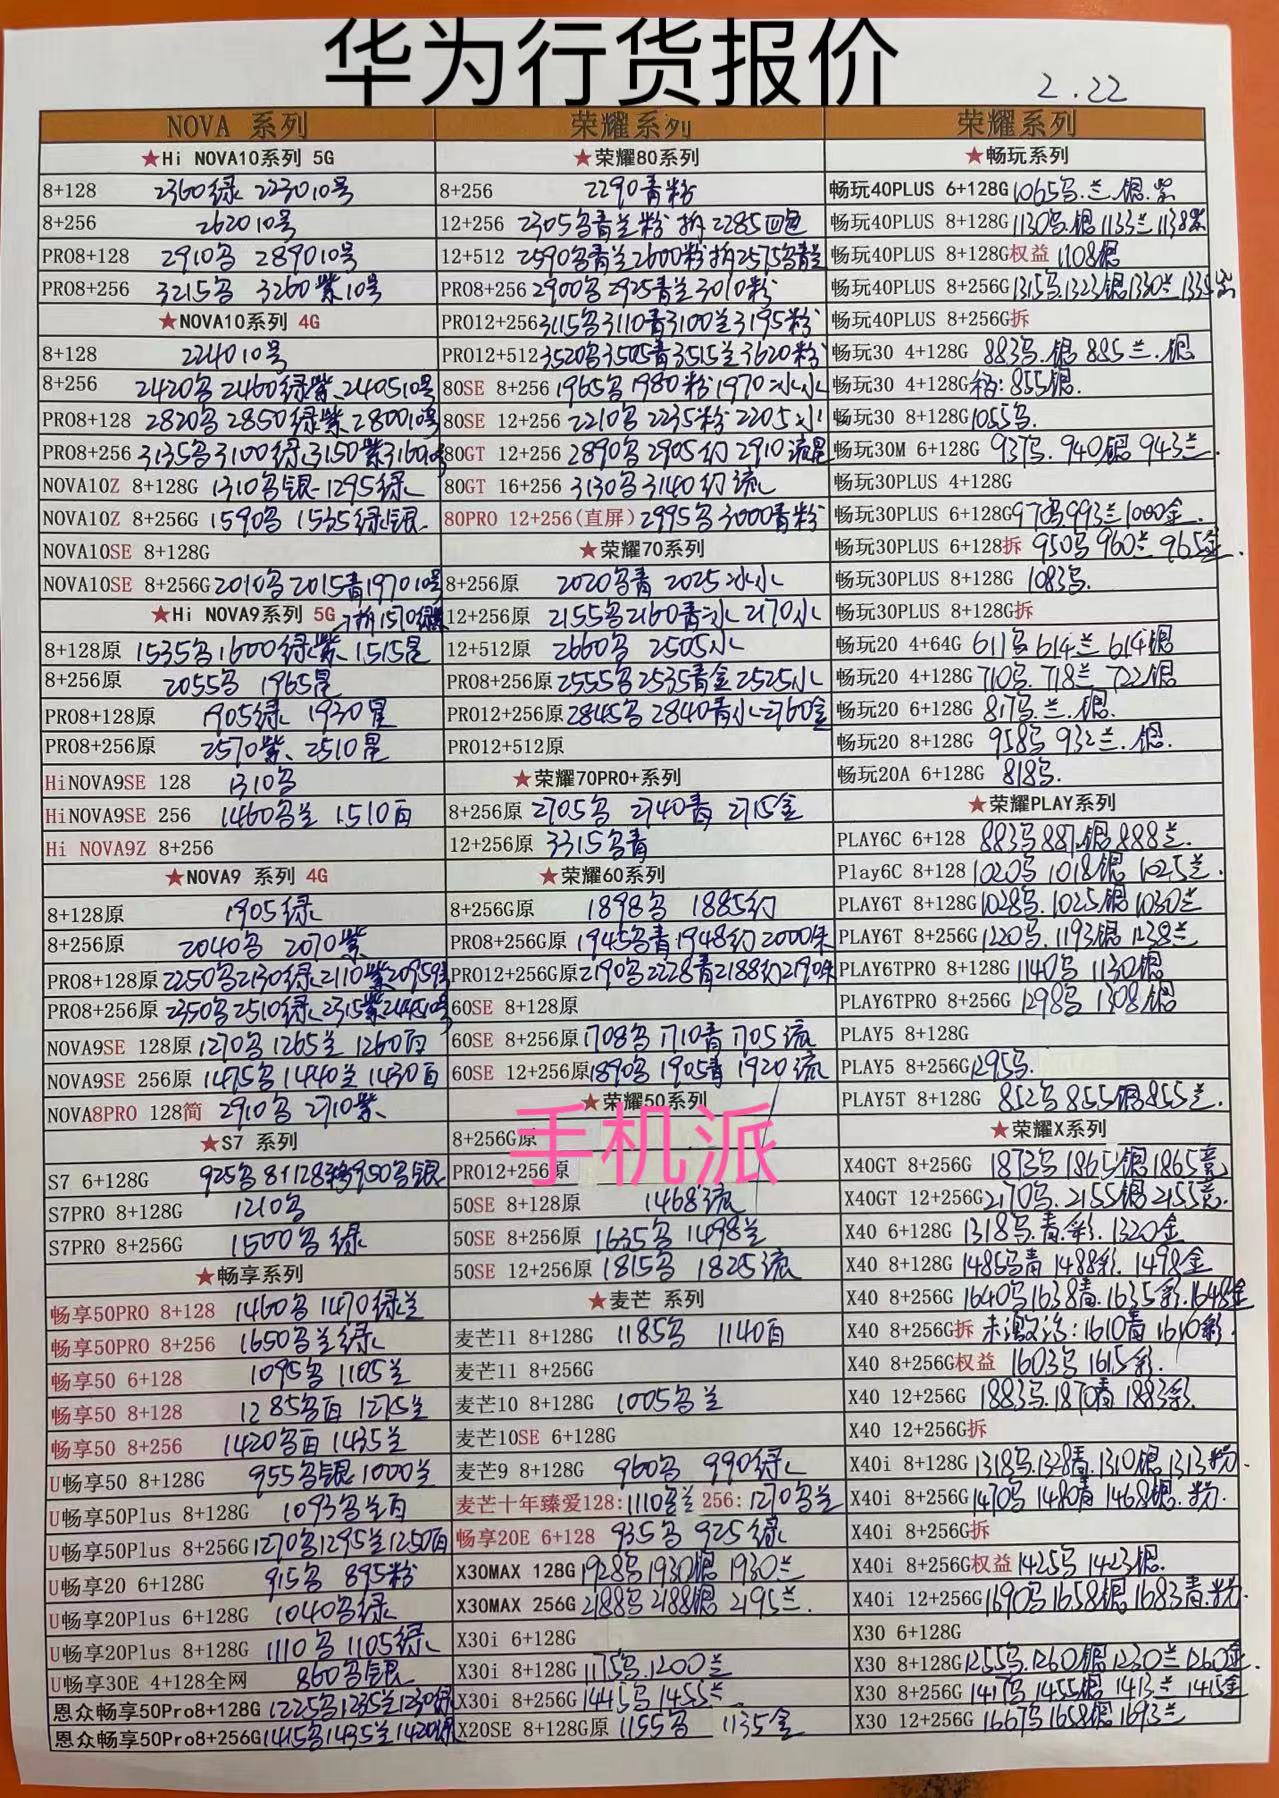 华为行货报价
2.22
NOVA 系列
★Hi NOVA10系列 5G
8+128 2360绿 2230 10号
8+256 2620 10号
PRO8+128 2910乌 2890 10号
PRO8+256 3215乌 3260紫10号
★NOVA10系列 4G
8+128 2240 10号
8+256 2420乌 2460绿紫 2440510号
PRO8+128 2820乌 2850绿紫 2800 10号
PRO8+256 3135乌 3100绿 3150紫 3160
NOVA10Z 8+128G 1310乌银 1295绿
NOVA10Z 8+256G 1590乌 1535绿银
NOVA10SE 8+128G
NOVA10SE 8+256G 2010乌 2015青 1970 10号
★Hi NOVA9系列 5G 拆1570
8+128原 1535乌 1600绿紫 1515星
8+256原 2055乌 1965星
PRO8+128原 1905绿 1930星
PRO8+256原 2570紫 2510星
HiNOVA9SE 128 1310乌
HiNOVA9SE 256 1460乌兰 1510百
Hi NOVA9Z 8+256
★NOVA9 系列 4G
8+128原 1905绿
8+256原 2040乌 2070紫
PRO8+128原 2250乌 2130绿 2110紫 2095
PRO8+256原 2350乌 2510绿 2315紫
NOVA9SE 128原 1270乌 1265兰 1260百
NOVA9SE 256原 1475乌 1440兰 1430百
NOVA8PRO 128简 2910乌 2710紫
★S7 系列
S7 6+128G 925乌 8+128 950乌银
S7PRO 8+128G 1210乌
S7PRO 8+256G 1500乌绿
★畅享系列
畅享50PRO 8+128 1460乌 1470绿兰
畅享50PRO 8+256 1650乌兰绿
畅享50 6+128 1095乌 1105兰
畅享50 8+128 1285乌百 1275兰
畅享50 8+256 1420乌百 1435兰
U畅享50 8+128G 955乌银 1000兰
U畅享50Plus 8+128G 1093乌兰百
U畅享50Plus 8+256G 1270乌 1295兰 1250百
U畅享20 6+128G 915乌 895粉
U畅享20Plus 6+128G 1040乌绿
U畅享20Plus 8+128G 1110乌 1105绿
U畅享30E 4+128全网 860乌银
恩众畅享50Pro8+128G 1225乌 1235兰 1230绿
恩众畅享50Pro8+256G 1415乌 1435兰 1420绿
荣耀系列
★荣耀80系列
8+256 2290青粉
12+256 2305乌青兰粉 拆2285四色
12+512 2590乌青兰 2600粉 拆2575乌青兰
PRO8+256 2900乌 2925青兰 3010粉
PRO12+256 3115乌 3110青 3100兰 3195粉
PRO12+512 3520乌 3505青 3515兰 3620粉
80SE 8+256 1965乌 1980粉 1970冰水
80SE 12+256 2210乌 2235粉 2205水
80GT 12+256 2890乌 2905幻 2910流星
80GT 16+256 3130乌 3140幻流
80PRO 12+256(直屏) 2995乌 3000青粉
★荣耀70系列
8+256原 2020乌青 2025冰水
12+256原 2155乌 2160青冰 2170水
12+512原 2660乌 2505水
PRO8+256原 2555乌 2535青金 2525水
PRO12+256原 2845乌 2840青水 2760金
PRO12+512原
★荣耀70PRO+系列
8+256原 2705乌 2740青 2715金
12+256原 3315乌青
★荣耀60系列
8+256G原 1898乌 1885幻
PRO8+256G原 1945乌青 1948幻 2000朱
PRO12+256G原 2190乌 2228青 2188幻 2190朱
60SE 8+128原
60SE 8+256原 1708乌 1710青 1705流
60SE 12+256原 1890乌 1905青 1920流
★荣耀50系列
手机派
8+256G原
PRO12+256原
50SE 8+128原 1468流
50SE 8+256原 1635乌 1498兰
50SE 12+256原 1815乌 1825流
★麦芒 系列
麦芒11 8+128G 1185乌 1140百
麦芒11 8+256G
麦芒10 8+128G 1005乌兰
麦芒10SE 6+128G
麦芒9 8+128G 960乌 990绿
麦芒十年臻爱128: 1110乌兰 256: 1270乌兰
畅享20E 6+128 935乌 925绿
X30MAX 128G 1928乌 1930银 1930兰
X30MAX 256G 2188乌 2188银 2195兰.
X30i 6+128G
X30i 8+128G 1175乌.1200兰
X30i 8+256G 1445乌 1455兰.
X20SE 8+128G原 1155乌 1135金
荣耀系列
★畅玩系列
畅玩40PLUS 6+128G 1065乌.兰.银.紫
畅玩40PLUS 8+128G 1130乌.银 1133兰 1138紫
畅玩40PLUS 8+128G权益 1108银
畅玩40PLUS 8+256G 1315乌.1323银 1330兰 133
畅玩40PLUS 8+256G拆
畅玩30 4+128G 883乌.银 885兰.
畅玩30 4+128G 855银.
畅玩30 8+128G 1055乌.
畅玩30M 6+128G 937乌. 940银 943兰.
畅玩30PLUS 4+128G
畅玩30PLUS 6+128G 970乌 993兰 1000金.
畅玩30PLUS 6+128拆 950乌 960兰 965金.
畅玩30PLUS 8+128G 1083乌.
畅玩30PLUS 8+128G拆
畅玩20 4+64G 611乌 614兰 614银
畅玩20 4+128G 710乌. 718兰 722银
畅玩20 6+128G 817乌.兰.银.
畅玩20 8+128G 958乌 932兰.银.
畅玩20A 6+128G 818乌.
★荣耀PLAY系列
PLAY6C 6+128 883乌 887.银 888兰.
Play6C 8+128 1020乌 1018银 1025兰.
PLAY6T 8+128G 1028乌.1025银 1030兰
PLAY6T 8+256G 1220乌.1193银 1238兰
PLAY6TPRO 8+128G 1140乌 1130银
PLAY6TPRO 8+256G 1298乌 1308银
PLAY5 8+128G
PLAY5 8+256G 1295乌.
PLAY5T 8+128G 852乌 855银 855兰.
★荣耀X系列
X40GT 8+256G 1873乌 1865银 1865竞
X40GT 12+256G 2170乌. 2155银 2155竞.
X40 6+128G 1318乌.青.彩. 1320金
X40 8+128G 1485乌青 1488彩. 1498金
X40 8+256G 1640乌 1638青.1635彩.1648金
X40 8+256G拆 未激活:1610青 1610彩.
X40 8+256G权益 1603乌 1615彩.
X40 12+256G 1883乌.1870青 1883彩.
X40 12+256G拆
X40i 8+128G 1318乌.1328青.1310银 1313粉.
X40i 8+256G 1470乌 1480青 1468银.粉.
X40i 8+256G拆
X40i 8+256G权益 1425乌 1423银.
X40i 12+256G 1690乌 1658银 1683青.粉.
X30 6+128G
X30 8+128G 1255乌.1260银 1230兰 1260金.
X30 8+256G 1417乌 1455银 1413兰 1415金
X30 12+256G 1667乌 1658银 1693兰